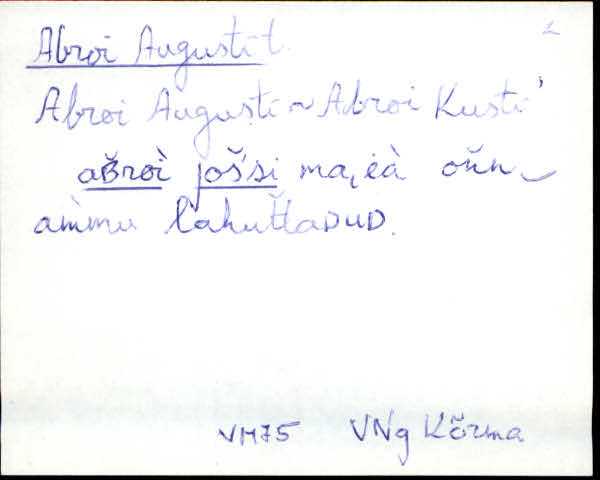 1
Abroi Augusti t.
Abroi Augusti ~ Abroi Kusti
aʙ̆roì još̆si ma,eà oňn
àm̀mu lahuťťaᴅuᴅ.
VM75 VNg Kõrma